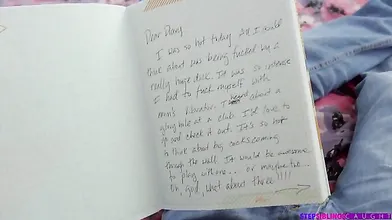 Dear Diary
I was so hot today All I could
think about was being fucked by a
really huge dick. It was so intense
I had to fuck myself with
mom's vibrator. I heard about a
glory hole at a club. I'd love to
go and check it out. It's so hot
to think about big cocks coming
through the wall. It would be awesome
to play with one... or maybe two...
Oh, god, what about three!!!!
STEPSIBLINGSCAUGHT